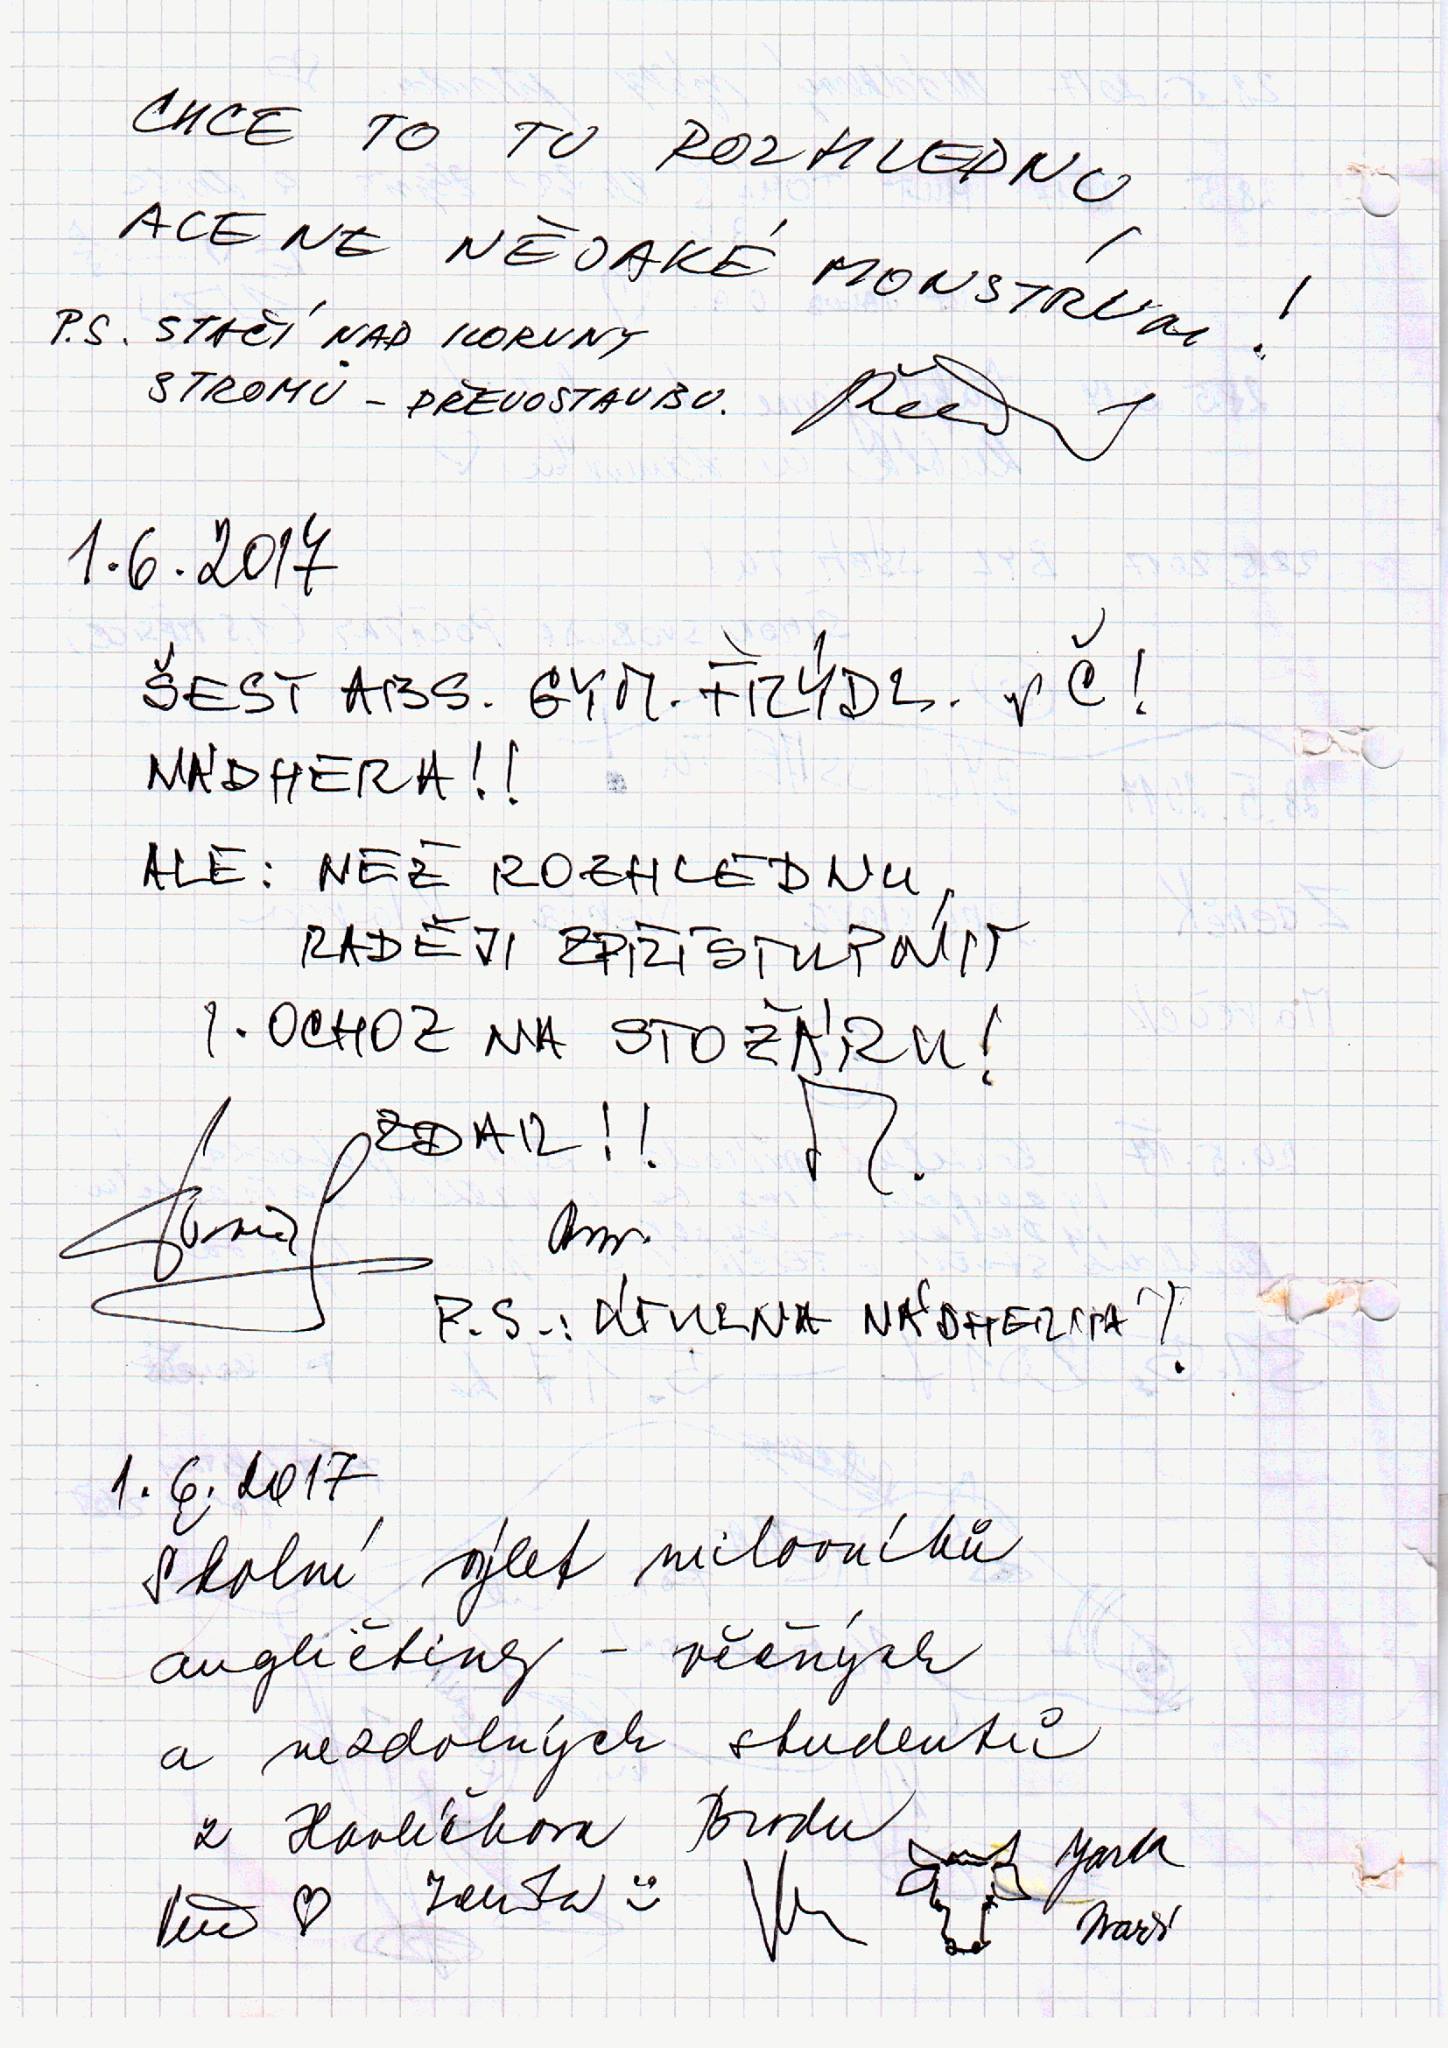 CHCE TO TU ROZHLEDNU,
ALE NE NĚJAKÉ MONSTRÚM!
P.S. STAČÍ NAD KORUNY
STROMŮ - DŘEVOSTAVBU.
1.6.2017
ŠEST ABS. GYM. FRÝDL. v Č!
NÁDHERA!!
ALE: NEŽ ROZHLEDNU,
RADĚJI ZPŘÍSTUPNIT
1. OCHOZ NA STOŽÁRU!
ZDAR!!
P.S.: ÚTULNA NÁDHERNÁ!
1.6.2017
Školní výlet milovníků
angličtiny - věčných
a nezdolných studentů
z Havlíčkova Brodu
♡ Zeňka